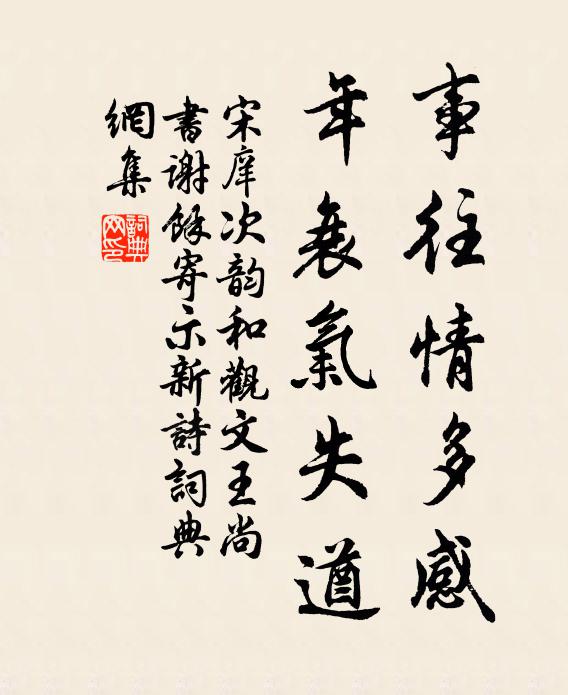 事往情多感
年衰氣失遒
宋庠次韵和觀文王尚
書謝餘寄示新詩詞典
網集
詞典
网印